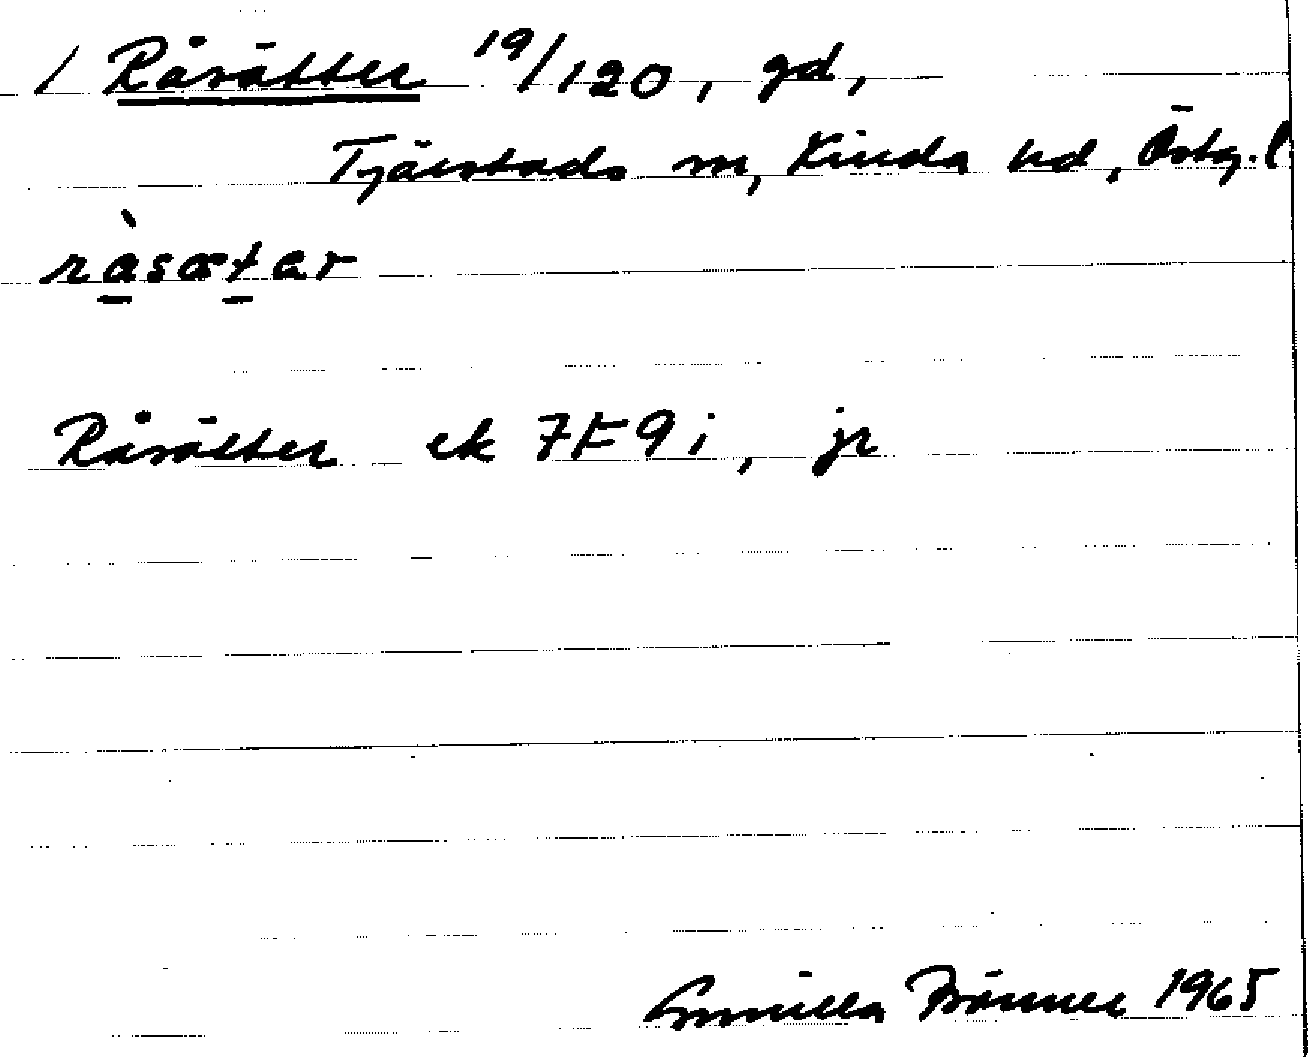 / Råsätter 19/120, gd,
Tjärstads sn, Kinda hd, Östg. l
ràsætər
Råsätter ek 7F9i, jr
Gunilla
1965